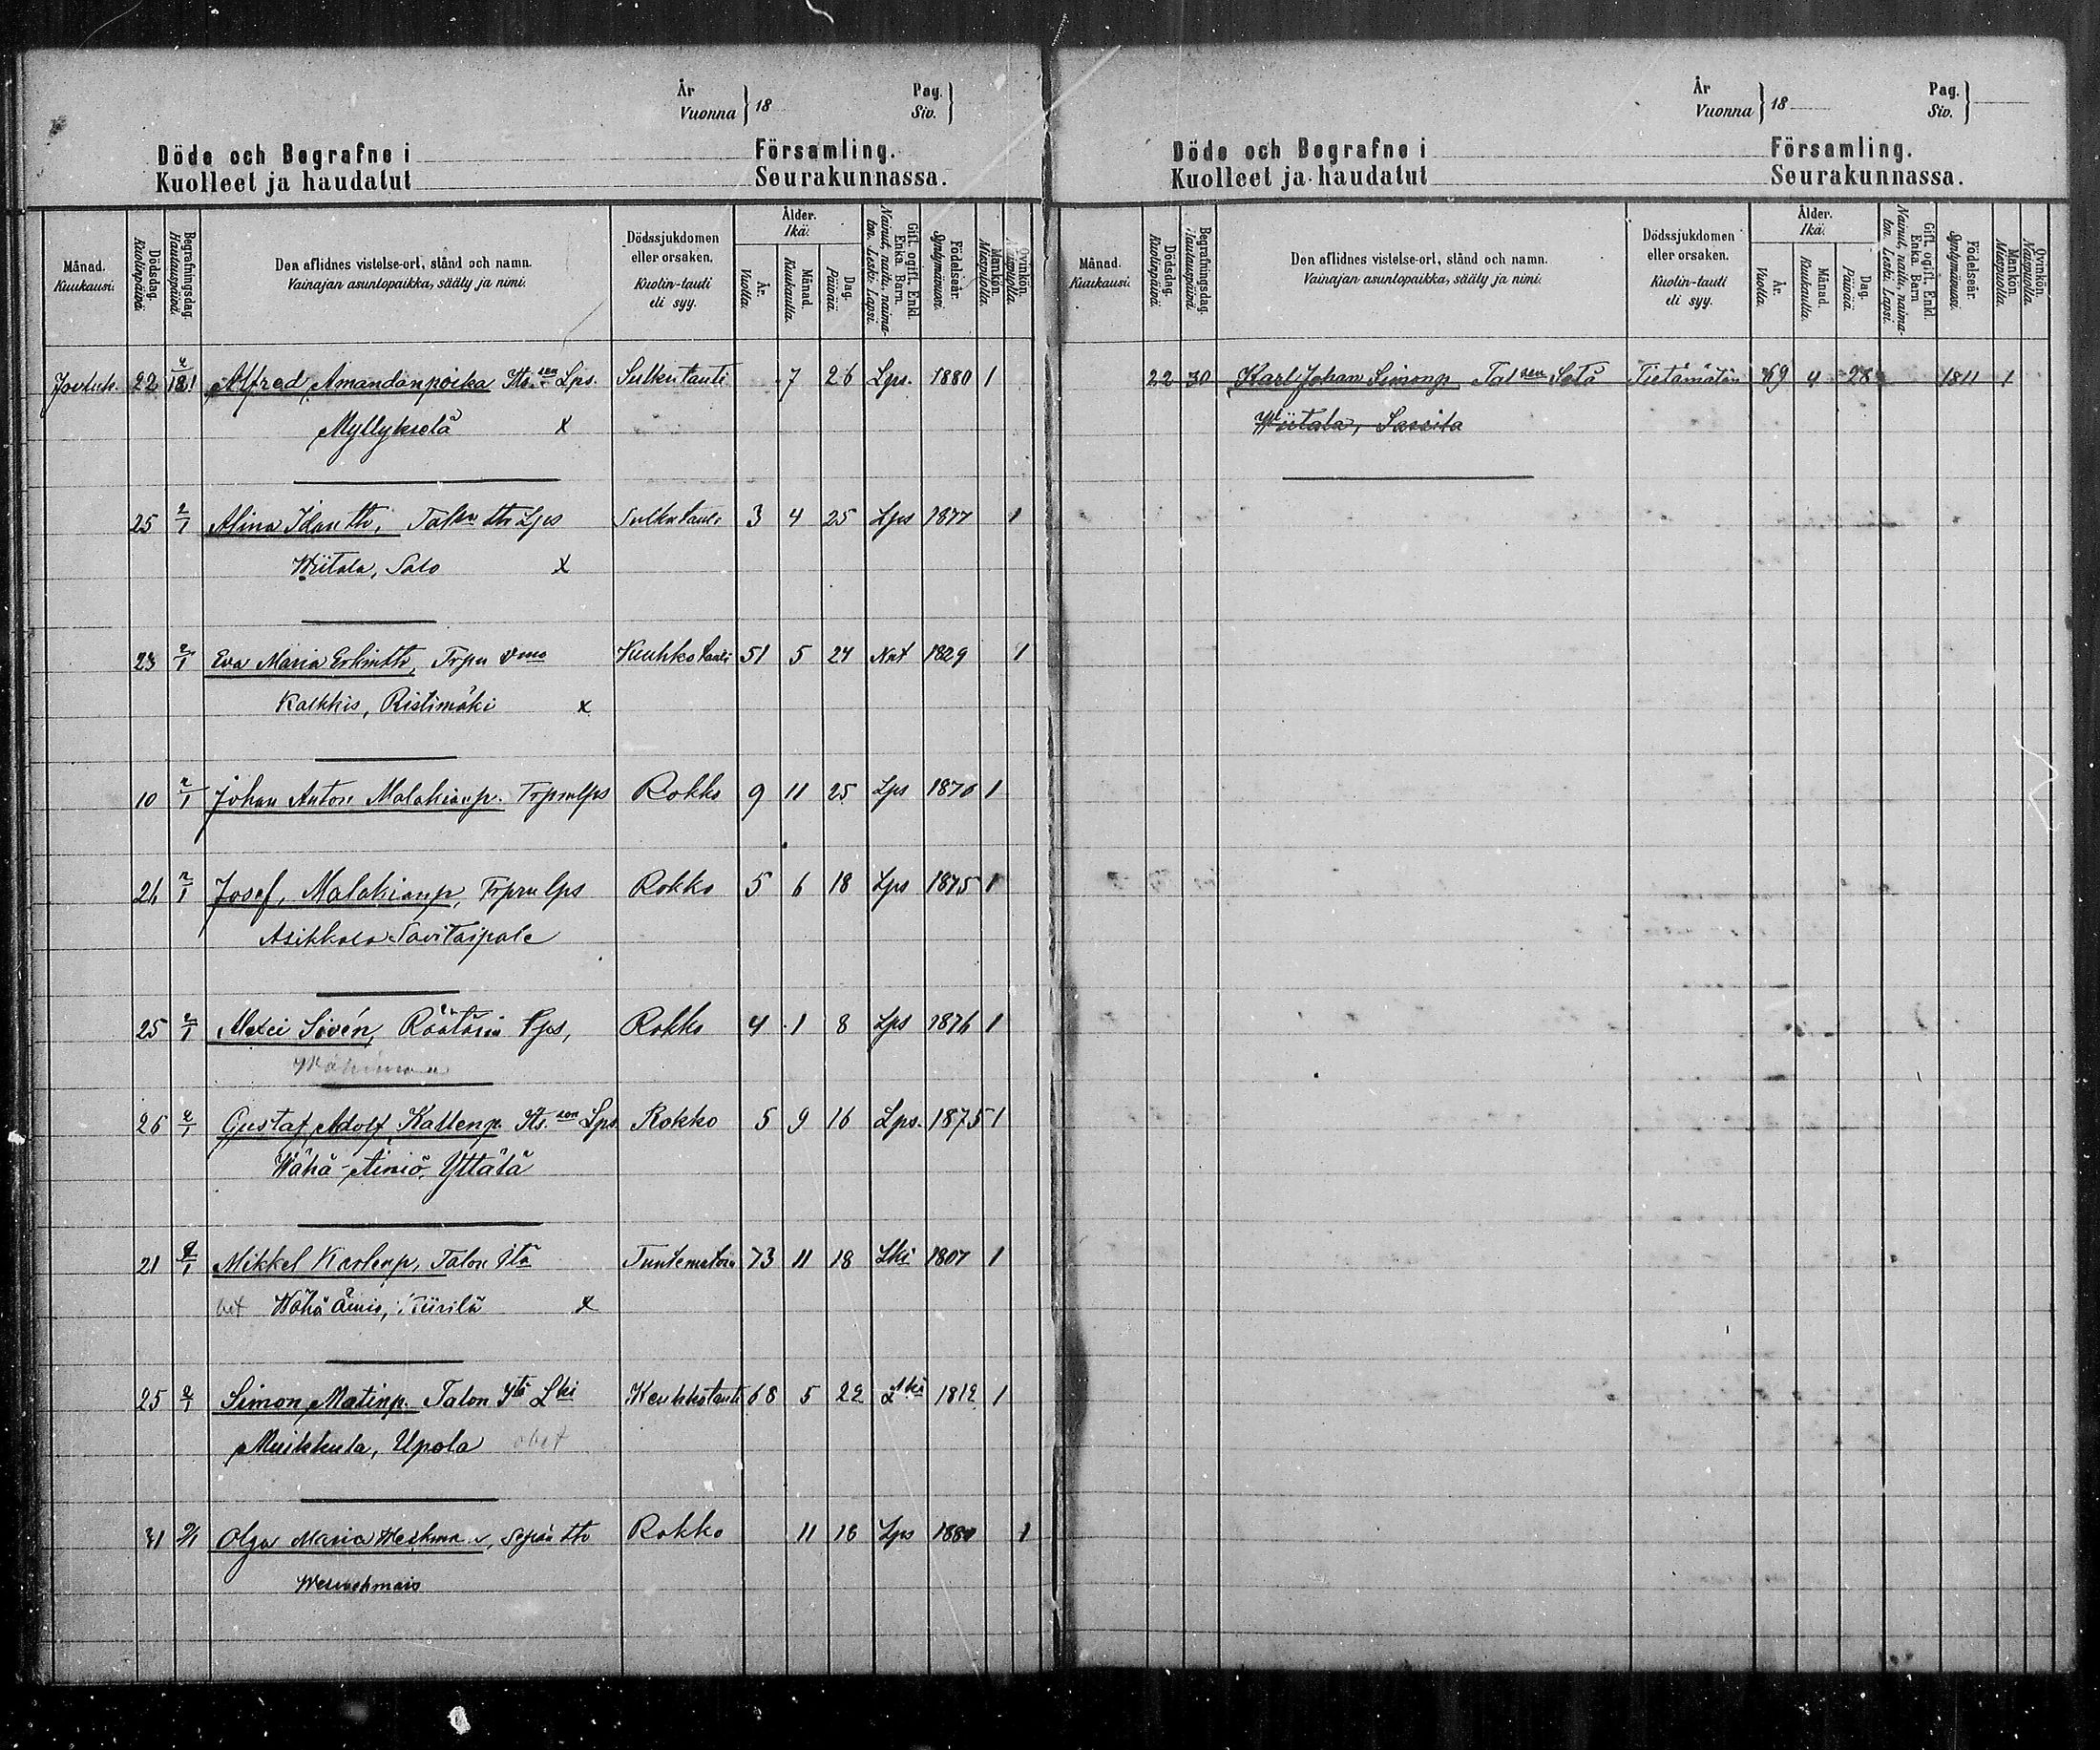 År
Vuonna } 18
Pag.
Siv. }
Döde och Begrafne i Församling.
Kuolleet ja haudatut Seurakunnassa.
Månad. Kuukausi.
Dödsdag. Kuolinpäivä.
Begrafningsdag. Hautauspäivä.
Den aflidnes vistelse-ort, stånd och namn.
Vainajan asuntopaikka, sääty ja nimi.
Dödssjukdomen eller orsaken.
Kuolin-tauti eli syy.
Ålder. Ikä.
År. Vuotta.
Månad. Kuukautta.
Dag. Päivää.
Gift, ogift, Enkl. Enka. Barn.
Nainut, naitu, naimaton. Leski. Lapsi.
Födelseår. Syntymävuosi.
Mankön. Miespuolia.
Qvinkön. Naispuolia.
Jouluk. 22 2/1 81 Alfred Amandanpoika Its. sen Lps. Sulkutauti 7 26 Lps. 1880 1
Myllykselä x
25 2/1 Alina Idan tr, Lps Sulkutauti 3 4 25 Lps 1877 1
Wiitala, Salo x
23 2/1 Eva Maria Erkintr, Trpn Vmo Keuhkotauti 51 5 24 Nnt 1829 1
Kalkkis, Ristimäki x
10 2/1 Johan Anton Malakianp. Trpnlps Rokko 9 11 25 Lps 1870 1
26 2/1 Josef, Malakianp, Trpnlps Rokko 5 6 18 Lps 1875 1
Asikkala Savitaipale
25 2/1 Alexei Sivén, Räätärin lps, Rokko 4 1 8 Lps 1876 1
26 2/1 Gustaf Adolf Kallenp. Its. son Lps Rokko 5 9 16 Lps. 1875 1
Wähä-Äiniö, Yttälä
21 9/1 Mikkel Karlenp, Talon Itä Tuntematoin 73 11 18 Lki 1807 1
Wähä Äinio, Kiirilä x
25 2/1 Simon Matinp. Talon Itä Lki Keuhkotauti 68 5 22 Lski 1812 1
Muikkula, Upola obet
31 9/1 Olga Maria Weckman, Sepän ttr Rokko 11 16 Lps 1880 1
År
Vuonna } 18
Pag.
Siv. }
Döde och Begrafne i Församling.
Kuolleet ja haudatut Seurakunnassa.
Månad. Kuukausi.
Dödsdag. Kuolinpäivä.
Begrafningsdag. Hautauspäivä
Den aflidnes vistelse-ort, stånd och namn.
Vainajan asuntopaikka, sääty ja nimi.
Dödssjukdomen eller orsaken.
Kuolin-tauti eli syy.
Ålder. Ikä.
År. Vuotta.
Månad. Kuukautta.
Dag. Päivää.
Gift, ogift, Enkl. Enka. Barn
Nainut, naitu, naimaton. Leski. Lapsi.
Födelseår. Syntymävuosi.
Mankön. Miespuolia.
Qvinkön. Naispuolia.
22 30 Karl Johan Simonp Tal sen Setä Tietämätön 69 4 28 1811 1
Wiitala, Sassila